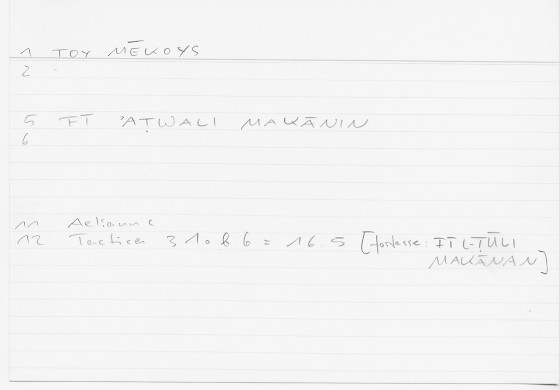 1 TOY MĒKOYS
2
5 FĪ 'AṬWALI MAKĀNIN
6
11 Aelianus
12 Tactica 3 10 b 6 = 16 5 [fortasse: FĪ L-ṬŪLI
MAKĀNAN]